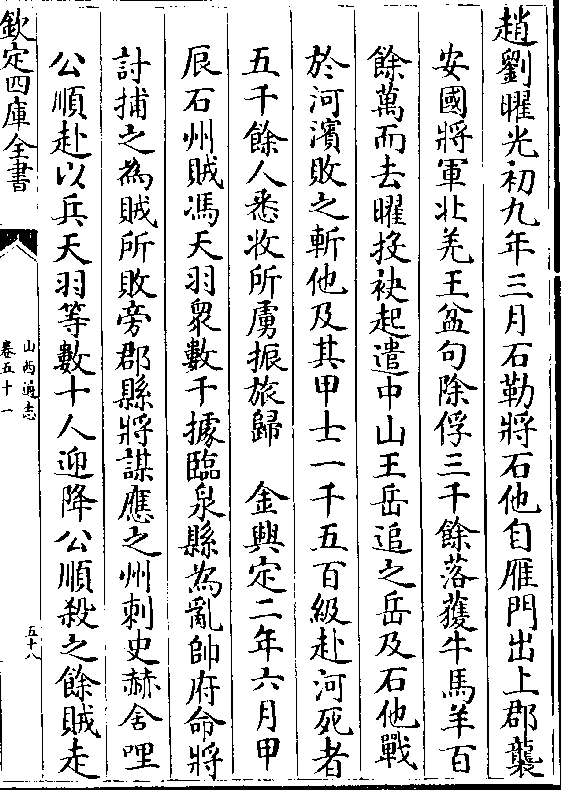 趙劉曜光初九年三月石勒將石他自雁門出上郡襲
安國將軍北羌王盆句除俘三千餘落獲牛馬羊百
餘萬而去曜投袂起遣中山王岳追之岳及石他戰
於河濱敗之斬他及其甲士一千五百級赴河死者
五千餘人悉收所虜振旅歸　金興定二年六月甲
辰石州賊馮天羽衆數千據臨泉縣為亂帥府命將
討捕之為賊所敗旁郡縣將謀應之州刺史赫舍哩
公順赴以兵天羽等數十人迎降公順殺之餘賊走
欽定四庫全書
山西通志
卷五十一
五十八